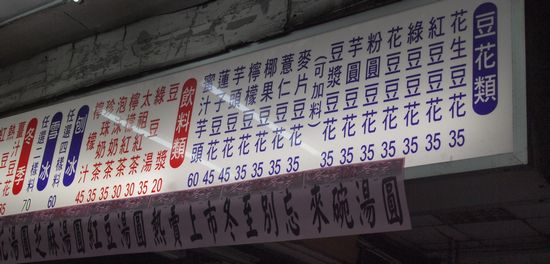 豆花類
花生豆花 35
紅豆豆花 35
綠豆豆花 35
花豆豆花 35
粉圓豆花 35
芋圓豆花 35
豆漿豆花 35
(可加料)
麥片豆花 35
薏仁豆花 35
椰果豆花 35
檸檬豆花 35
芋頭豆花 45
蓮子豆花 45
蜜汁芋頭 60
飲料類
豆漿 20
綠豆湯 35
紅茶
檸檬紅茶
泡沫奶茶
珍珠奶茶 35
檸檬汁 45
刨冰
任選四樣料 60
冰
任選二樣料 70
冬季
湯圓芝麻湯圓紅豆湯圓熱賣上市冬至別忘來碗湯圓